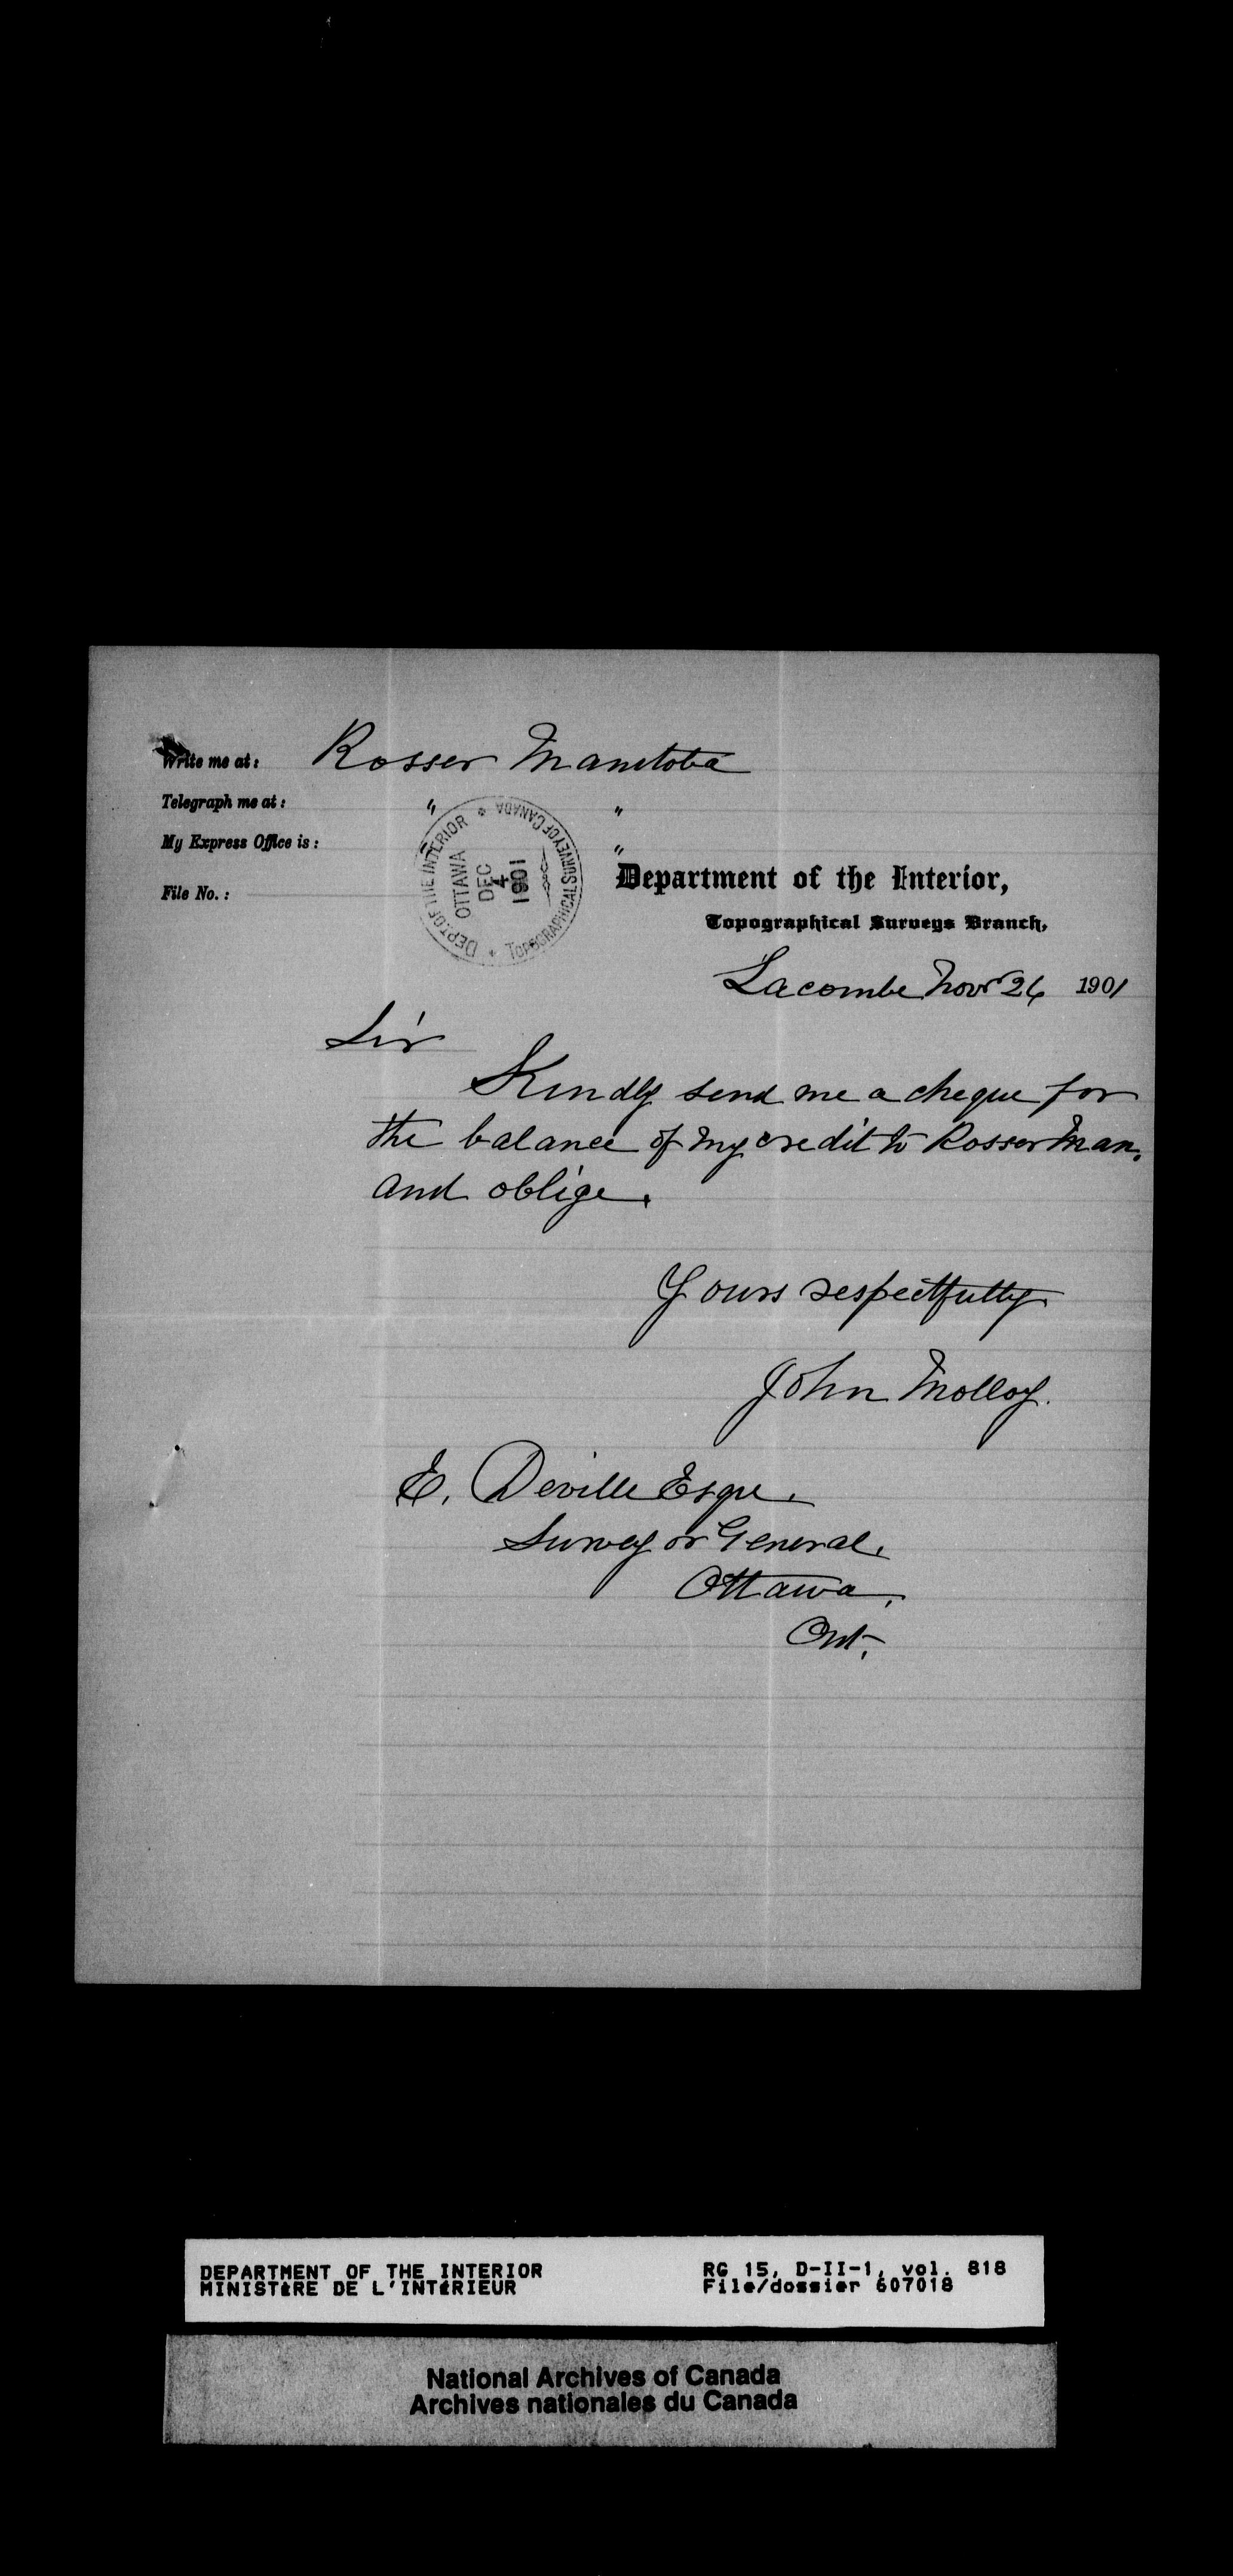 Write me at: Rosser Manitoba
Telegraph me at: " "
My Express Office is: " "
File No.:
DEPT. OF THE INTERIOR * TOPOGRAPHICAL SURVEY OF CANADA *
OTTAWA
DEC
4
1901
Department of the Interior,
Topographical Surveys Branch,
Lacombe Novr 26 1901
Sir
Kindly send me a cheque for
the balance of my credit to Rosser Man.
and oblige.
Yours respectfully
John Molloy.
E. Deville Esqre.
Surveyor General.
Ottawa.
Ont.
DEPARTMENT OF THE INTERIOR
MINISTÈRE DE L'INTÉRIEUR
RG 15, D-II-1, vol. 818
File/dossier 607018
National Archives of Canada
Archives nationales du Canada